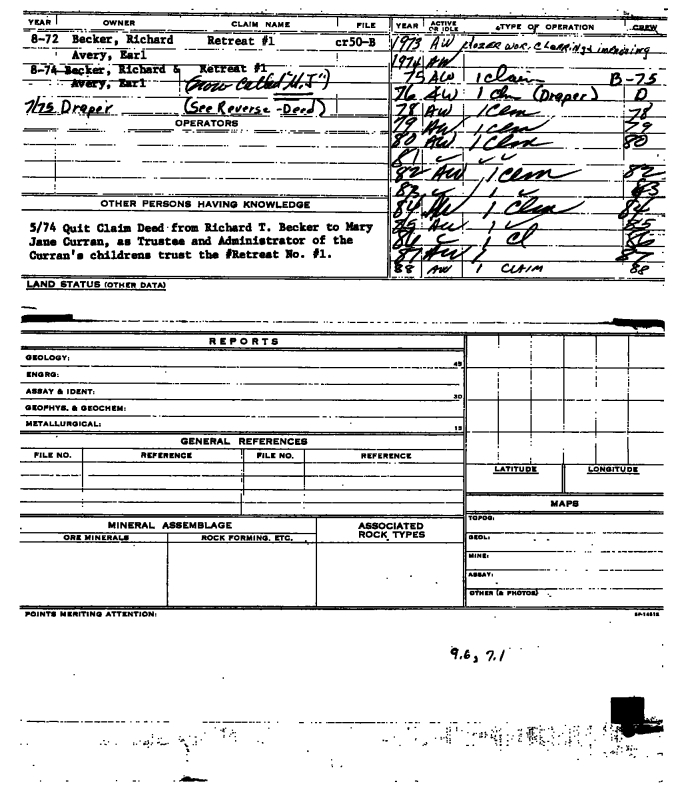 YEAR OWNER CLAIM NAME FILE
8-72 Becker, Richard Retreat #1 cr50-B
Avery, Earl
8-74 Becker, Richard & Retreat #1
Avery, Earl (now called "M.J")
7/75 Draper (See Reverse - Deed)
OPERATORS
OTHER PERSONS HAVING KNOWLEDGE
5/74 Quit Claim Deed from Richard T. Becker to Mary
Jane Curran, as Trustee and Administrator of the
Curran's childrens trust the #Retreat No. #1.
LAND STATUS (OTHER DATA)
YEAR ACTIVE OR IDLE TYPE OF OPERATION CREW
1973 AW DOZER WOR. CLEARING & IMPROVING
1974 AW
75 AW 1 claim B-75
76 AW 1 clm (Draper) D
78 AW 1 clm 78
79 AW 1 clm 79
80 AW 1 clm 80
81 ✓ ✓ ✓
82 AW 1 clm 82
83 ✓ 1 ✓ 83
84 AW 1 Clm 84
85 AW 1 ✓ 85
86 ✓ 1 cl 86
87 AW 1 87
88 AW 1 CLAIM 88
REPORTS
GEOLOGY: 45
ENGRG:
ASSAY & IDENT: 30
GEOPHYS. & GEOCHEM:
METALLURGICAL: 15
GENERAL REFERENCES
FILE NO. REFERENCE FILE NO. REFERENCE
LATITUDE LONGITUDE
MAPS
TOPOG:
GEOL:
MINE:
ASSAY:
OTHER (& PHOTOS)
MINERAL ASSEMBLAGE ASSOCIATED ROCK TYPES
ORE MINERALS ROCK FORMING, ETC.
POINTS MERITING ATTENTION:
9.6, 7.1